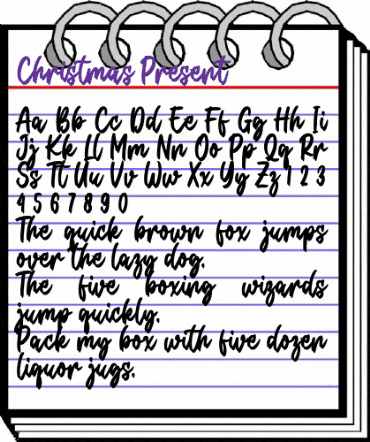 Christmas Present
Aa Bb Cc Dd Ee Ff Gg Hh Ii
Jj Kk Ll Mm Nn Oo Pp Qq Rr
Ss Tt Uu Vv Ww Xx Yy Zz 1 2 3
4 5 6 7 8 9 0
The quick brown fox jumps
over the lazy dog.
The five boxing wizards
jump quickly.
Pack my box with five dozen
liquor jugs.